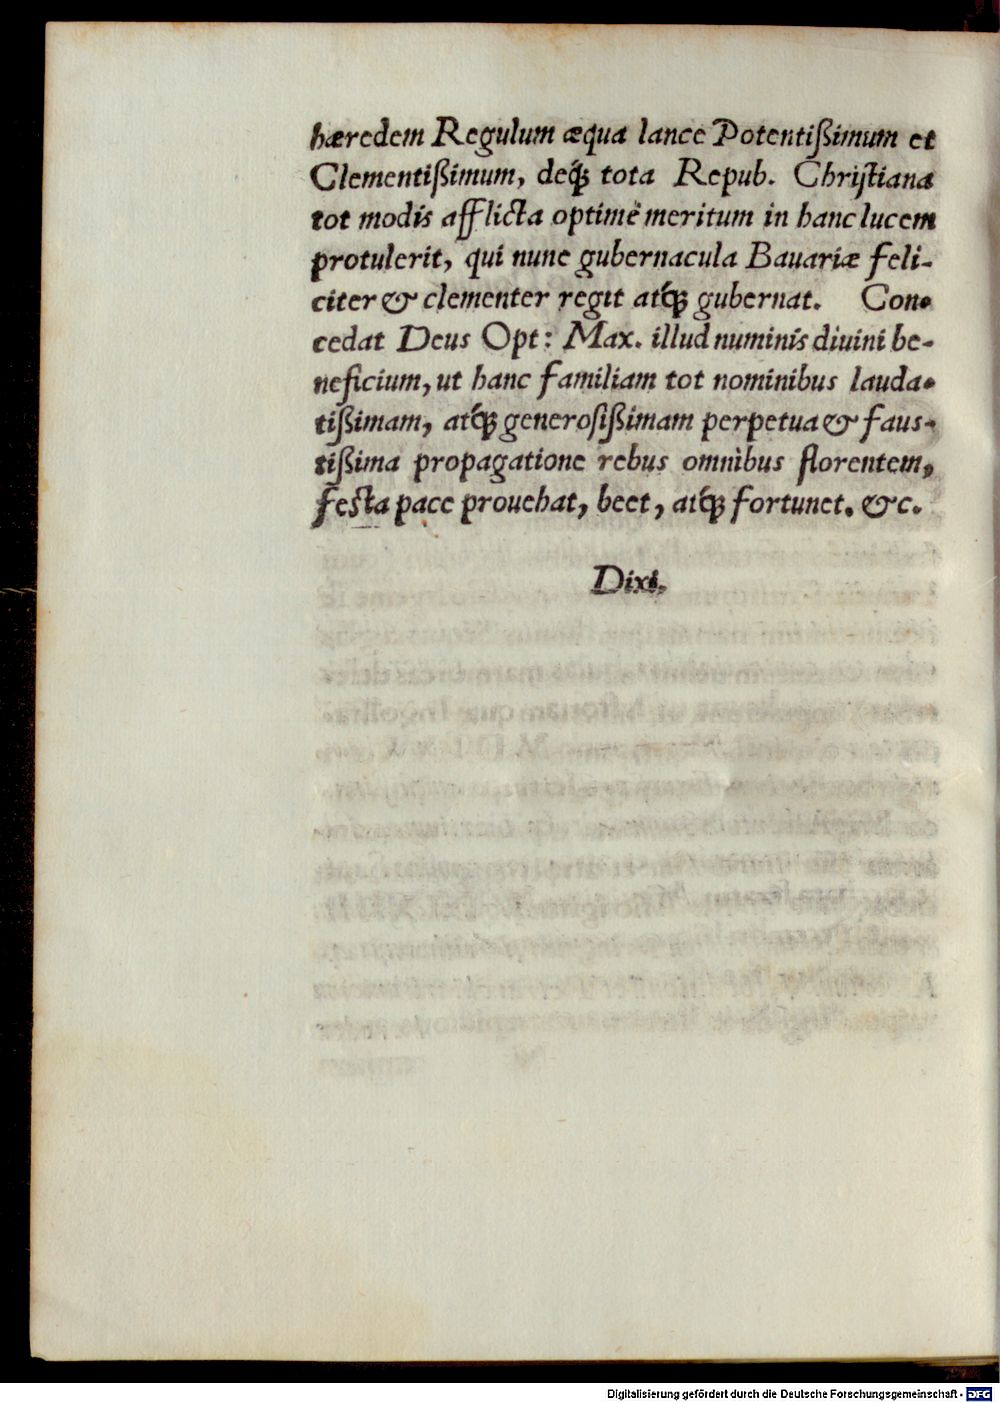 hæredem Regulum æqua lance Potentißimum et
Clementißimum, deq́ꝫ tota Repub. Christiana
tot modis afflicta optimè meritum in hanc lucem
protulerit, qui nunc gubernacula Bauariæ feli-
citer & clementer regit atq́ꝫ gubernat. Con-
cedat Deus Opt: Max. illud numinis diuini be-
neficium, ut hanc familiam tot nominibus lauda-
tißimam, atq́ꝫ generosißimam perpetua & faus-
tißima propagatione rebus omnibus florentem,
festa pace prouehat, beet, atq́ꝫ fortunet. &c.
Dixi.
Digitalisierung gefördert durch die Deutsche Forschungsgemeinschaft - DFG